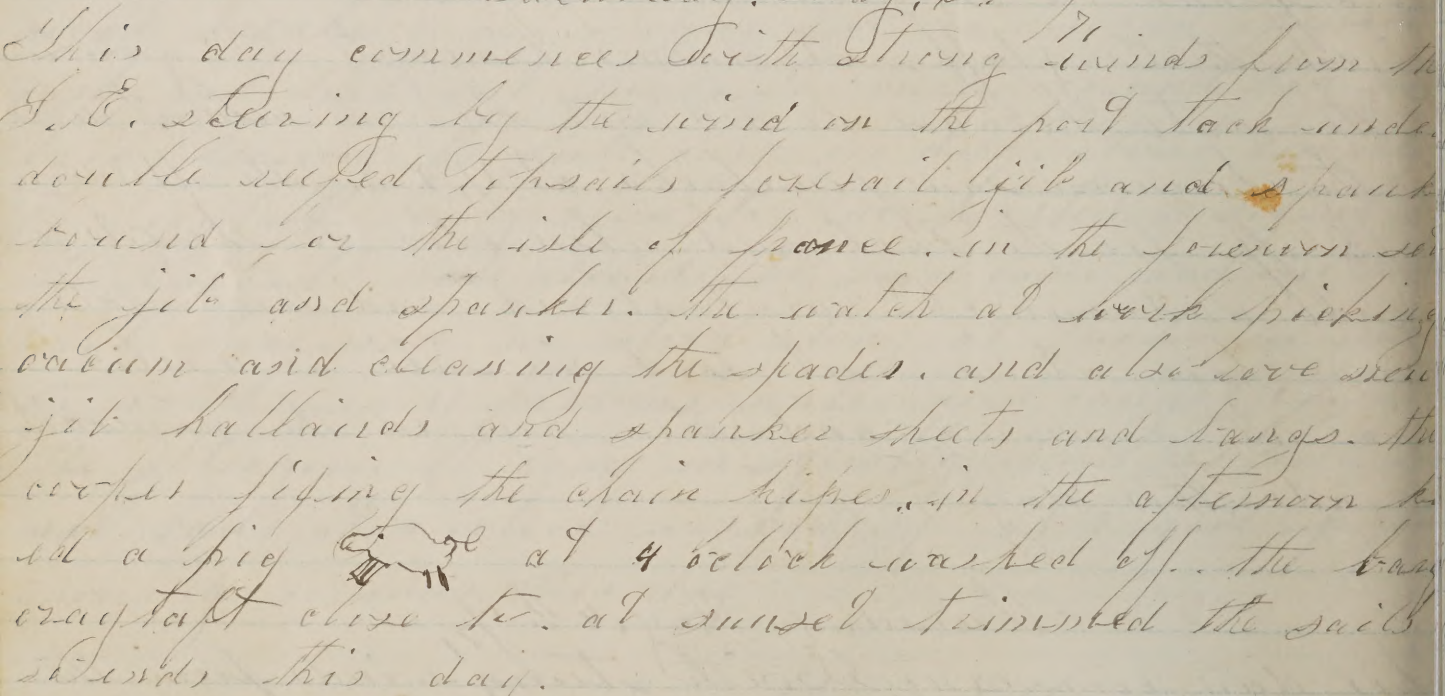 71
This day commences with strong winds from th
S.E. steering by the wind on the port tack unde
double reefed topsails foresail jib and spank
bound for the isle of france. in the forenoon set
the jib and spanker. the watch at work picking
oacum and cleaning the spades. and also rove new
jib hallairds and spanker sheets and vangs. the
cooper fixing the chain pipes. in the afternoon k
ed a pig at 4 oclock washed off. the barq
close to. at sunset trimmed the sails
so ends this day.